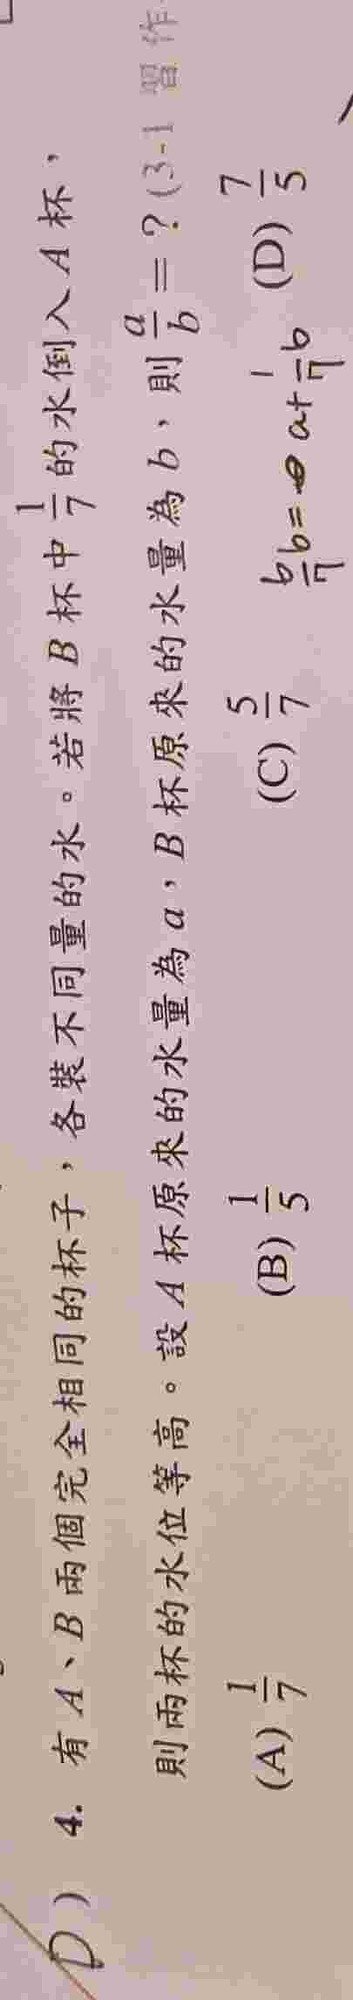 D ) 4. 有 A、B 兩個完全相同的杯子，各裝不同量的水。若將 B 杯中 1/7 的水倒入 A 杯，
則兩杯的水位等高。設 A 杯原來的水量為 a，B 杯原來的水量為 b，則 a/b = ? (3-1 習作
(A) 1/7 (B) 1/5 (C) 5/7 (D) 7/5
6/7 b = a + 1/7 b